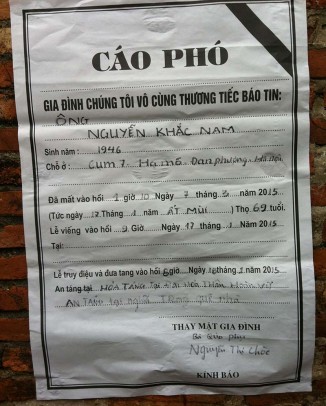 CÁO PHÓ
GIA ĐÌNH CHÚNG TÔI VÔ CÙNG THƯƠNG TIẾC BÁO TIN:
ÔNG
NGUYỄN KHẮC NAM
Sinh năm: 1946
Chỗ ở: Cụm 7. Hạ mỗ. Đan phượng. Hà nội
Đã mất vào hồi 1 giờ 10 Ngày 7 tháng 3 năm 2015
(Tức ngày 17 Tháng 1 năm ẤT MÙI) Thọ 69 tuổi.
Lễ viếng vào hồi 9 Giờ Ngày 17 tháng 1 Năm 2015
Tại:
Lễ truy điệu và đưa tang vào hồi giờ Ngày tháng 2015
An táng tại HOẢ TÁNG tại
AN TÁNG tại nghĩa Trang
THAY MẶT GIA ĐÌNH
Nguyễn Thị
KÍNH BÁO